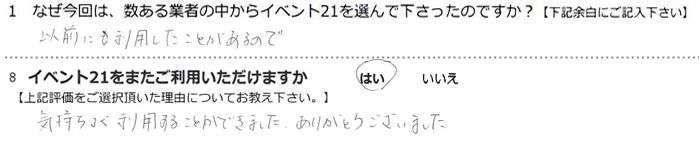 1 なぜ今回は、数ある業者の中からイベント21を選んで下さったのですか？【下記余白にご記入下さい】
以前にも利用したことがあるので
8 イベント21をまたご利用いただけますか はい いいえ
【上記評価をご選択頂いた理由についてお教え下さい。】
気持ちよく利用することができました。ありがとうございました